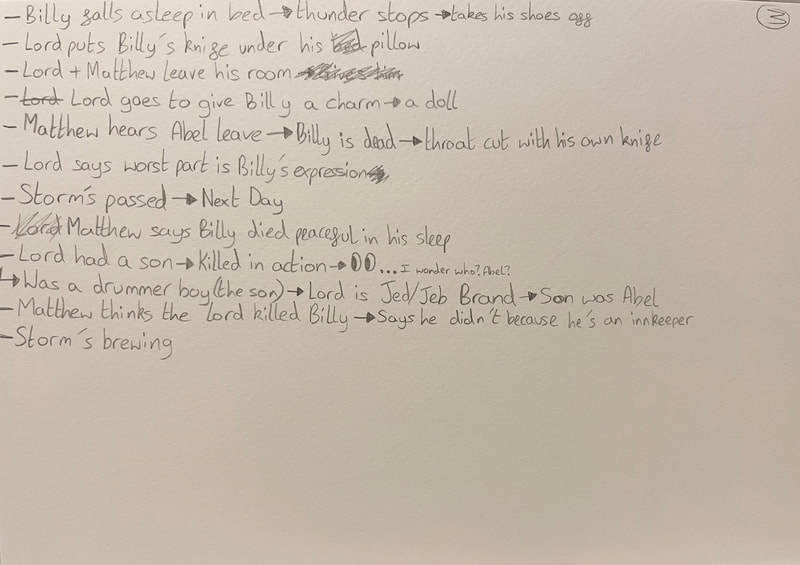 - Billy falls asleep in bed → thunder stops → takes his shoes off
③
- Lord puts Billy's knife under his pillow
- Lord + Matthew leave his room
- Lord Lord goes to give Billy a charm → a doll
- Matthew hears Abel leave → Billy is dead → throat cut with his own knife
- Lord says worst part is Billy's expression
- Storm's passed → Next Day
- Lord Matthew says Billy died peaceful in his sleep
- Lord had a son → Killed in action → OO... I wonder who? Abel?
↳ Was a drummer boy (the son) → Lord is Jed/Jeb Brand → Son was Abel
- Matthew thinks the Lord killed Billy → Says he didn't because he's an innkeeper
- Storm's brewing